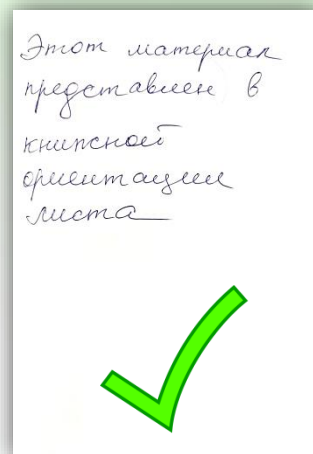 Этот материал
представлен в
книжной
ориентации
листа